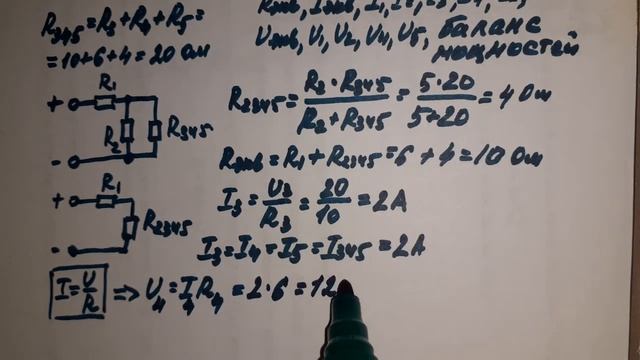 R345 = R3 + R4 + R5 =
= 10+6+4 = 20 Ом
Rэкв, I экв, I1, I2,
Uэкв, U1, U2, U4, U5, баланс
мощностей
+ R1
R2 R345
-
R2345 = R2 · R345 / R2 + R345 = 5·20 / 5+20 = 4 Ом
Rэкв = R1 + R2345 = 6 + 4 = 10 Ом
+ R1
R2345
-
I3 = U3 / R3 = 20 / 10 = 2A
I3 = I4 = I5 = I345 = 2A
I = U / R => U4 = I4 R4 = 2·6 = 12